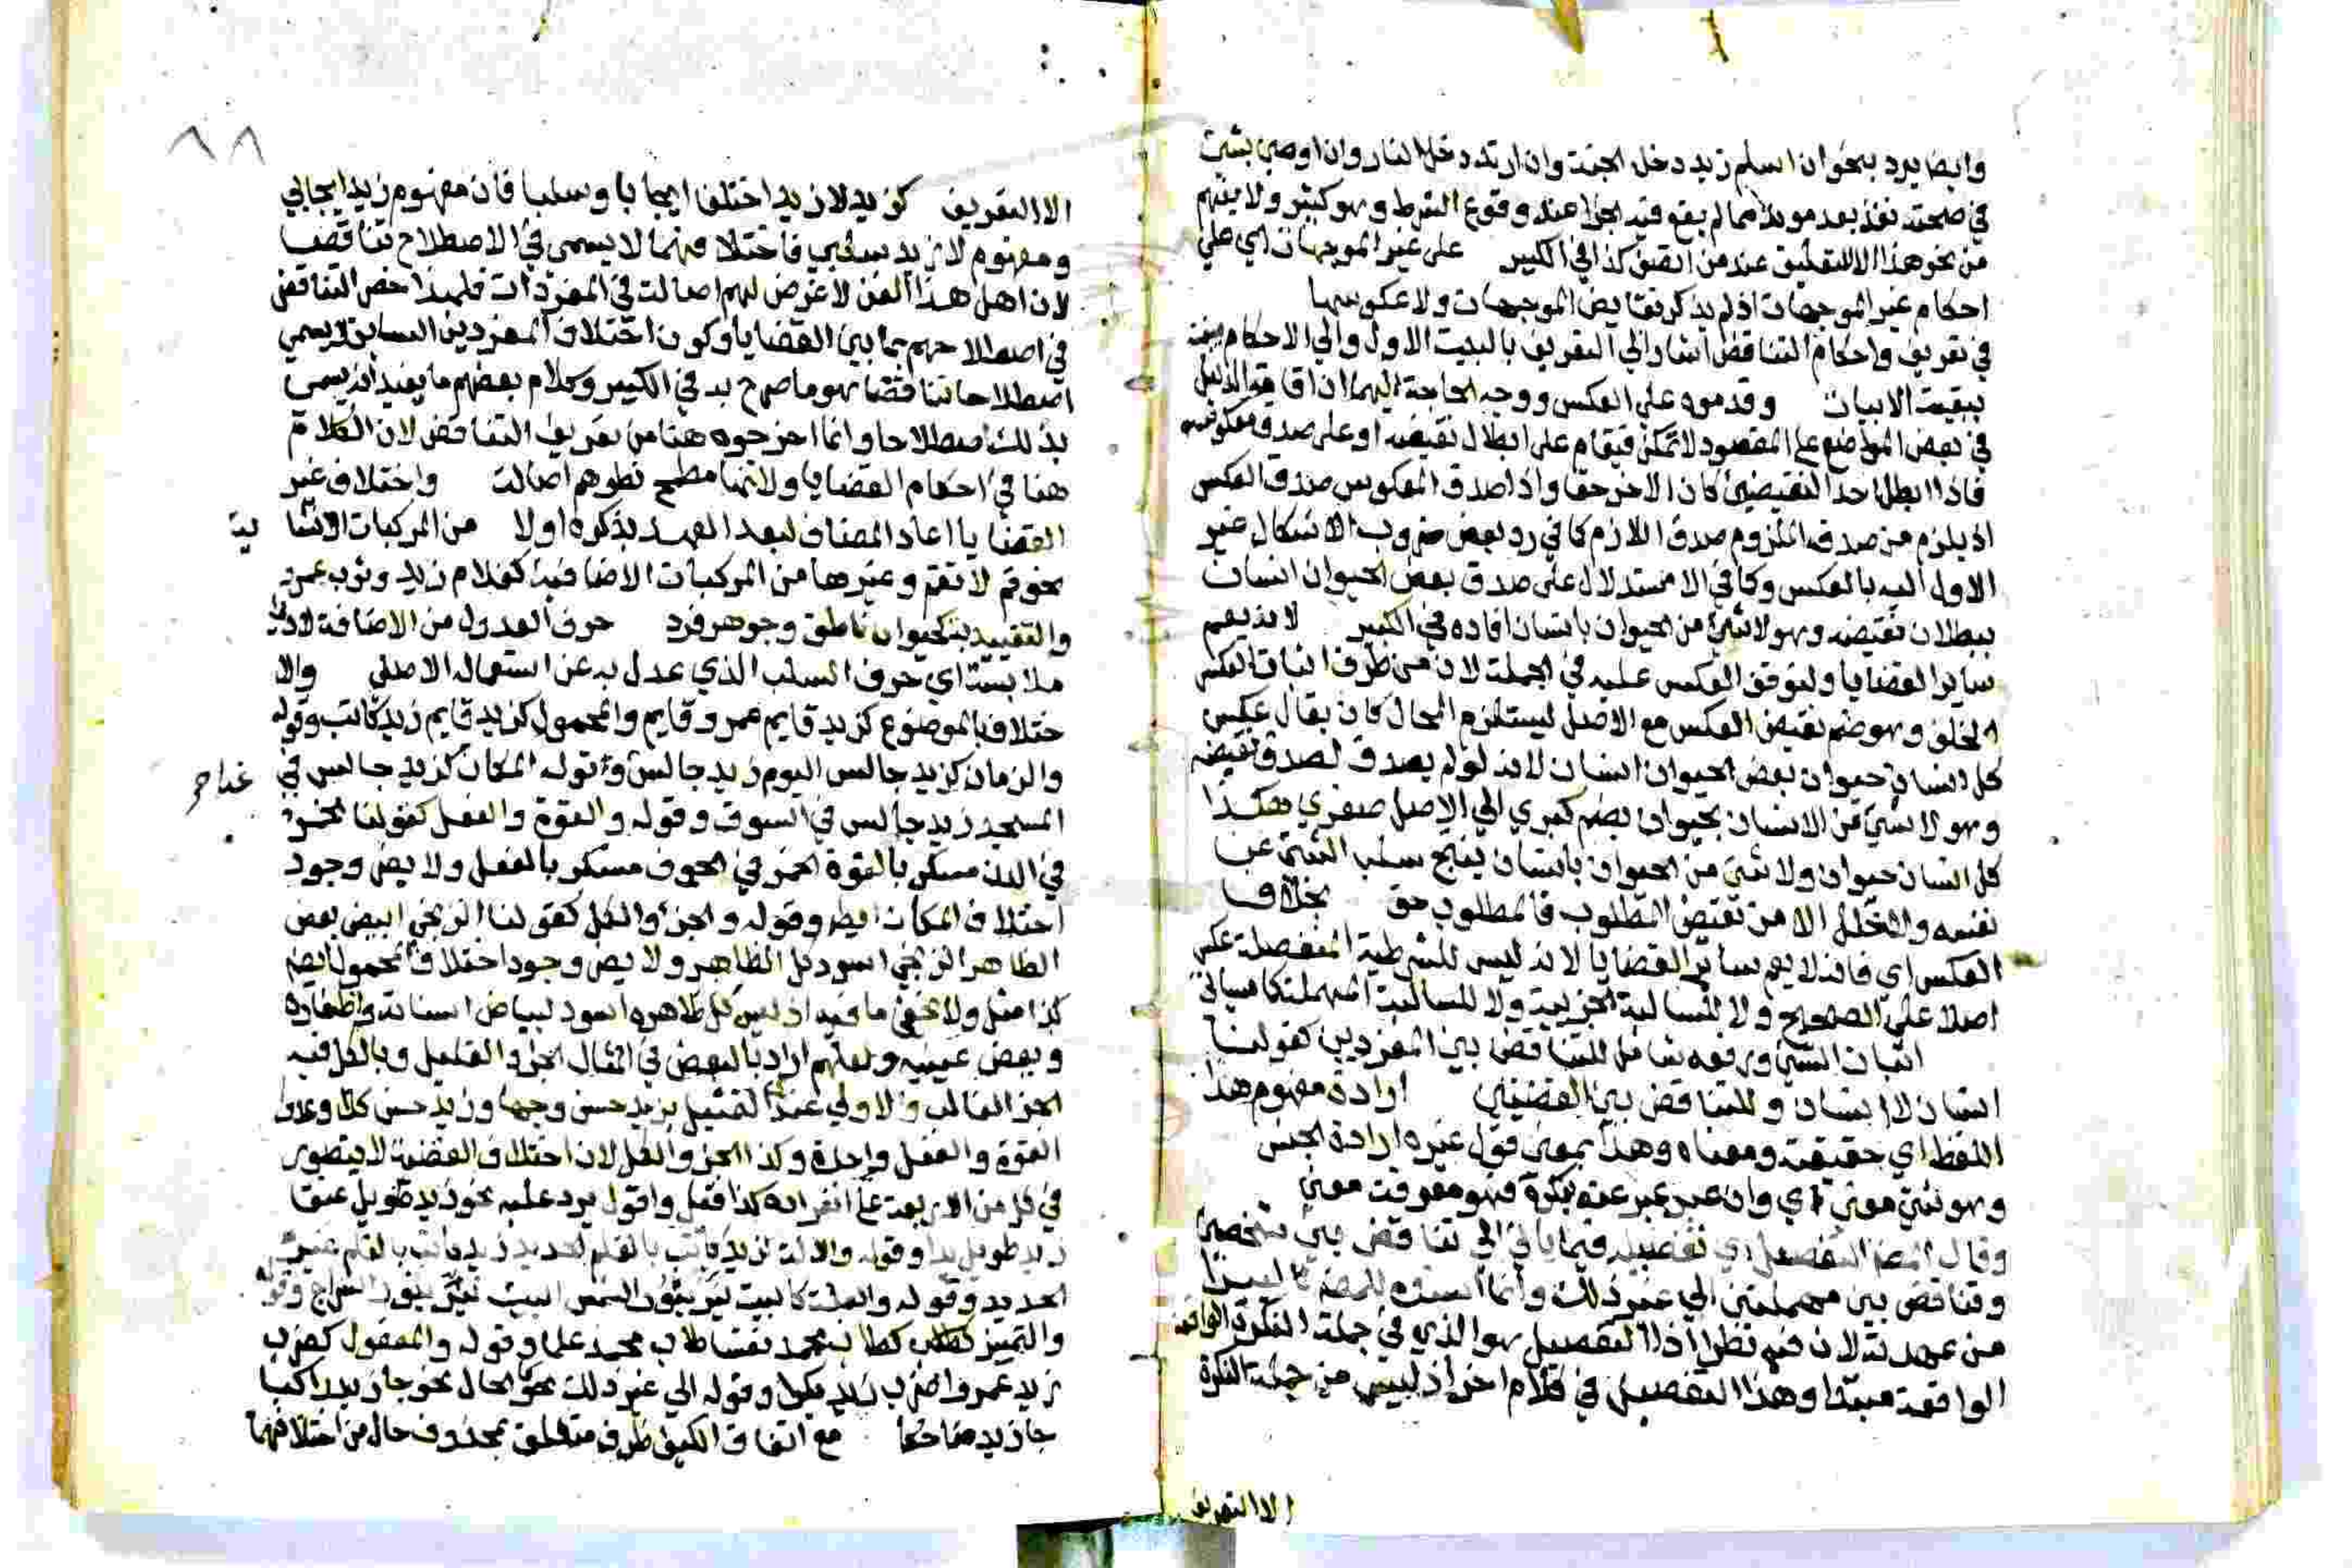 وايضا يرد بنحو ان اسلم زيد دخل الجنة وان ارتد دخل النار وان اوصي بشئ
في صحته نفذ بعد موته مما لم يقع فيه الجزا عند وقوع الشرط وهو كثير ولا يفهم
من نحو هذا الا التعليق عند من انصف كذا في الكبير على غير الموجهات اي علي
احكام غير الموجهات اذ لم يذكر نقايض الموجهات ولا عكوسها
في تعريف واحكام التناقض اشار الي التعريف بالبيت الاول والي الاحكام
ببقية الابيات وقدموه علي العكس ووجه الحاجة اليهما ان اقامة الدليل
في بعض المواضع علي المقصود لا تمكن فيقام على ابطال نقيضه او على صدق معكوسه
فاذا ابطل احد النقيضين كان الاخر حقا واذا صدق المعكوس صدق العكس
اذ يلزم من صدق الملزوم صدق اللازم كما في رد بعض ضروب الاشكال غير
الاول اليه بالعكس وكما في الاستدلال على صدق بعض الحيوان انسان
ببطلان نقيضه وهو لا شئ من الحيوان بانسان افاده في الكبير لانه يعم
ساير القضايا ولتوقف العكس عليه في الجملة لان من طرق اثبات العكس
الخلف وهو ضم نقيض العكس مع الاصل ليستلزم المحال كان يقال عكس
كل انسان حيوان بعض الحيوان انسان لانه لو لم يصدق لصدق نقيضه
وهو لا شئ من الانسان بحيوان بضم كبري الي الاصل صغري هكذا
كل انسان حيوان ولا شئ من الحيوان بانسان ينتج سلب الشئ عن
نفسه والخلل الا من نقيض المطلوب فالمطلوب حق بخلاف
العكس اي فانه لا يعم ساير القضايا لانه ليس للشرطية المنفصلة عكس
اصلا علي الصحيح ولا للسالبة الجزيية ولا للسالبة المهملة كما سياتي
اثبات الشئ ورفعه شامل للتناقض بين المفردين كقولنا
انسان لا انسان وللتناقض بين القضيتين ارادة مفهوم هذا
اللفظ اي حقيقته ومعناه وهذا بمعني قول غيره ارادة الجنس
وهو شئ معين اي وان عبر عنه بنكرة فهو معرفة معني
وقال المصنف التفصيل اي تفصيله فيما ياتي الي تناقض بين شخصيتين
وتناقض بين مهملتين الي غير ذلك وانما اسنده للمصنف
من عهدته لان فيه نظرا اذ التفصيل هو الذي في جملة النكرة الواقعة
الواقعة مبتدا وهذا التفصيل في كلام اخر اذ ليس من جملة النكرة
الا التعريف
٨٨
الا التعريف كزيد لا زيد اختلفا ايجابا وسلبا فان مفهوم زيد ايجابي
ومفهوم لا زيد سلبي فاختلافهما لا يسمى في الاصطلاح تناقضا
لان اهل هذا الفن لا غرض لهم اصالة في المفردات فلهذا خص التناقض
في اصطلاحهم بما بين القضايا وكون اختلاف المفردين السابق لا يسمي
اصطلاحا تناقضا هو ما صرح به في الكبير وكلام بعضهم ما يفيد انه يسمي
بذلك اصطلاحا وانما اخرجوه هنا من تعريف التناقض لان الكلام
هنا في احكام القضايا ولانها مطمح نظرهم اصالة واختلاف غير
القضايا اعاد المضاف لبعد العهد بذكره اولا من المركبات الانشا ية
نحو قم لا تقم وغيرها من المركبات الاضافية كغلام زيد وثوب عمرو
والتقييدية كحيوان ناطق وجوهر فرد حرف العدول من الاضافة لادني
ملابسة اي حرف السلب الذي عدل به عن استعماله الاصلي والا
ختلاف بالموضوع كزيد قايم عمرو قايم والمحمول كزيد قايم زيد كاتب وقوله
والزمان كزيد جالس اليوم زيد جالس وقوله المكان كزيد جالس في غدا صح
المسجد زيد جالس في السوق وقوله والقوة والفعل كقولنا الخمر
في الدن مسكر بالقوة الخمر في الجوف مسكر بالفعل ولا يضر وجود
اختلاف المكان ايضا وقوله والجزء والكل كقولنا الزنجي ابيض بعض
الظاهر الزنجي اسود كل الظاهر ولا يضر وجود اختلاف المحمول ايضا
كذا مثل ولا يخفى ما فيه اذ ليس كل ظاهره اسود لبياض اسنانه واظفاره
وبعض عينيه ولعلهم ارادوا بالبعض في المثال الجزء القليل وبالكل فيه
الجزء الغالب والاولي عندي التمثيل بزيد حسن وجها وزيد حسن كلا وعدوا
القوة والفعل واحدة وكذا الجزء والكل لان اختلاف القضية لا يتصور
في كل من الاربعة علي انفراده كذا قيل واقول يرد عليه نحو زيد طويل عنقا
زيد طويل يدا وقوله والالة كزيد كاتب بالقلم الحديد زيد كاتب بالقلم غير
الحديد وقوله والعلة كالبيت نير بنور الشمس البيت نير بنور السراج وقوله
والتمييز كطاب محمد نفسا طاب محمد علما وقوله والمفعول كضرب
زيد عمرا ضرب زيد بكرا وقوله الي غير ذلك نحو الحال نحو جا زيد راكبا
جا زيد ضاحكا مع اتفاق الكيف ظرف متعلق بمحذوف حال من اختلافهما